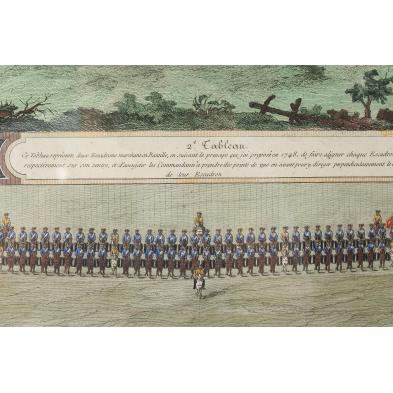 2e Tableau.
Ce Tableau représente deux Escadrons marchans en Bataille, en suivant le principe que j'ai proposé en 1748, de faire aligner chaque Escadron
respectivement sur son centre, et d'assujetir les Commandants à prendre des points de vue en avant pour y diriger perpendiculairement le
de leur Escadron.